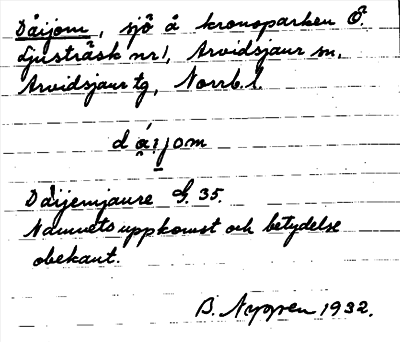 Dåijom, sjö å kronoparken Ö.
Ljusträsk nr 1, Arvidsjaur sn,
Arvidsjaur tg, Norrb. l.
dái̯jom
Dåijemjaure G. 35.
Namnets uppkomst och betydelse
obekant.
B. Nygren 1932.